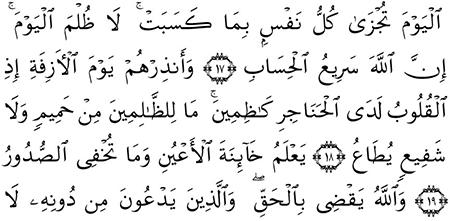 ٱلْيَوْمَ تُجْزَىٰ كُلُّ نَفْسٍۭ بِمَا كَسَبَتْ ۚ لَا ظُلْمَ ٱلْيَوْمَ ۚ
إِنَّ ٱللَّهَ سَرِيعُ ٱلْحِسَابِ ﴿١٧﴾ وَأَنذِرْهُمْ يَوْمَ ٱلْأَزِفَةِ إِذِ
ٱلْقُلُوبُ لَدَى ٱلْحَنَاجِرِ كَٰظِمِينَ ۚ مَا لِلظَّٰلِمِينَ مِنْ حَمِيمٍ وَلَا
شَفِيعٍ يُطَاعُ ﴿١٨﴾ يَعْلَمُ خَآئِنَةَ ٱلْأَعْيُنِ وَمَا تُخْفِى ٱلصُّدُورُ
﴿١٩﴾ وَٱللَّهُ يَقْضِى بِٱلْحَقِّ ۖ وَٱلَّذِينَ يَدْعُونَ مِن دُونِهِۦ لَا